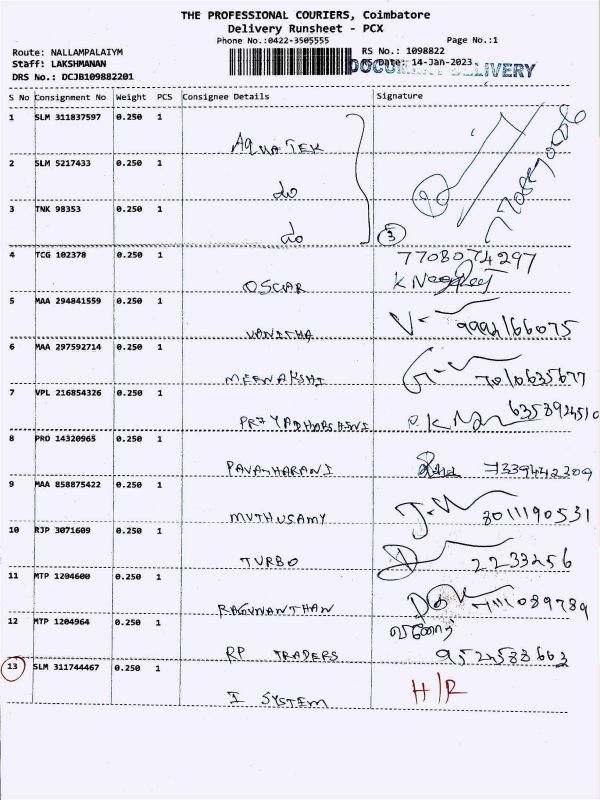 THE PROFESSIONAL COURIERS, Coimbatore
Delivery Runsheet - PCX
Phone No.:0422-3505555 Page No.:1
Route: NALLAMPALAIYM RS No.: 1098822
Staff: LAKSHMANAN RS Date: 14-Jan-2023
DOCUMENT DELIVERY
DRS No.: DCJB109882201
S No Consignment No Weight PCS Consignee Details Signature
1 SLM 311837597 0.250 1
AQUA TEK
7708570056
2 SLM 5217433 0.250 1
do
3 TNK 98353 0.250 1
do 3
4 TCG 102378 0.250 1 7708074297
OSCAR
5 MAA 294841559 0.250 1
VANITHA 9994166075
6 MAA 297592714 0.250 1
MEENAKSHI 7010635677
7 VPL 216854326 0.250 1 6358924510
PRIYADHARSHINI
8 PRO 14320965 0.250 1
PAVATHARANI 7339442209
9 MAA 858875422 0.250 1
MUTHUSAMY 8011190531
10 RJP 3071609 0.250 1
TURBO 2233256
11 MTP 1204600 0.250 1
RAGUNANTHAN 7111089789
12 MTP 1204964 0.250 1
RP TRADERS 9524588663
13 SLM 311744467 0.250 1 H/R
I SYSTEM